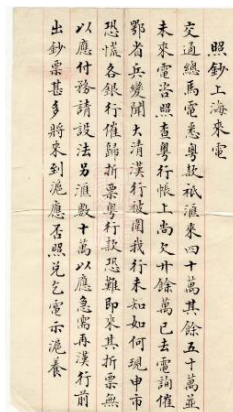 照鈔上海來電
交通總馬電悉粵款祇滙來四十萬其餘五十萬並
未來電咨照查粵行帳上尚欠卅餘萬已去電詢催
鄂省兵變聞大清漢行被圍我行未知如何現申市
恐慌各銀行催歸折票粵行款恐難即來其折票無
以應付務請設法另滙數十萬以應急需再漢行前
出鈔票甚多將來到滬應否照兌乞電示滬養